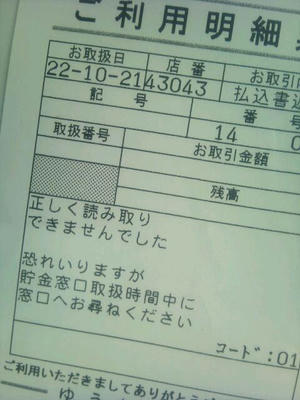 ご利用明細
お取扱日 店番 お取引
22-10-21 43043 払込書
記号 番
14 0
取扱番号 お取引金額
残高
正しく読み取り
できませんでした
恐れいりますが
貯金窓口取扱時間中に
窓口へお尋ねください
コード:01
ご利用いただきましてありがとう
ゆう